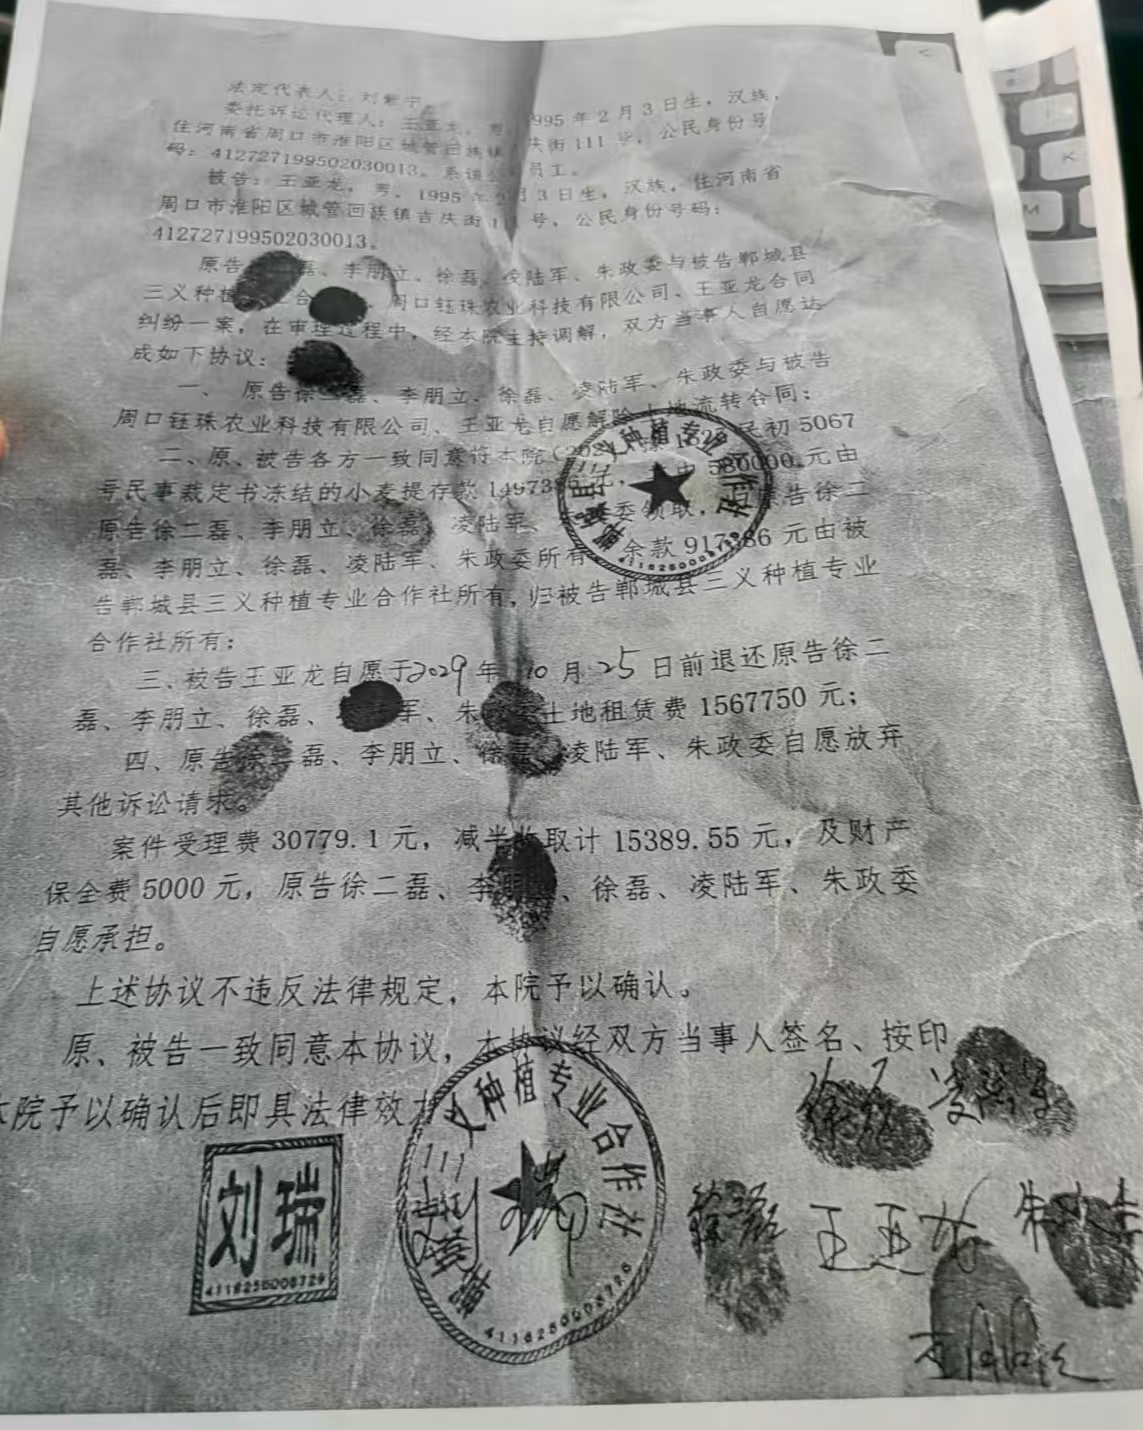 法定代表人：刘紫宁。
委托诉讼代理人：王亚龙，男，1995年2月3日生，汉族，
住河南省周口市淮阳区城管回族镇 庆街111号，公民身份号
码：412727199502030013。系该公 员工。
被告：王亚龙，男，1995年2月3日生，汉族，住河南省
周口市淮阳区城管回族镇吉庆街11 号，公民身份号码：
412727199502030013。
原告 磊、李朋立、徐磊、凌陆军、朱政委与被告郸城县
三义种植 合 、周口钰珠农业科技有限公司、王亚龙合同
纠纷一案，在审理过程中，经本院主持调解，双方当事人自愿达
成如下协议：
一、原告徐二磊、李朋立、徐磊、凌陆军、朱政委与被告
周口钰珠农业科技有限公司、王亚龙自愿解除土地流转合同；
二、原、被告各方一致同意将本院（202 民初5067
号民事裁定书冻结的小麦提存款1497386元， 由580000元由
原告徐二磊、李朋立、徐磊、凌陆军、 委领取， 原告徐二
磊、李朋立、徐磊、凌陆军、朱政委所有 余款917386元由被
告郸城县三义种植专业合作社所有，归被告郸城县三义种植专业
合作社所有；
三、被告王亚龙自愿于2029年10月25日前退还原告徐二
磊、李朋立、徐磊、 军、朱 土地租赁费1567750元；
四、原告徐二磊、李朋立、徐磊、凌陆军、朱政委自愿放弃
其他诉讼请求。
案件受理费30779.1元，减半收取计15389.55元，及财产
保全费5000元，原告徐二磊、李朋立、徐磊、凌陆军、朱政委
自愿承担。
上述协议不违反法律规定，本院予以确认。
原、被告一致同意本协议，本协议经双方当事人签名、按印
本院予以确认后即具法律效力
郸城县三义种植专业合作社
刘瑞
4116256008729
郸城县三义种植专业合作社
刘瑞
徐磊 凌陆军
徐二磊 王亚龙 朱政委